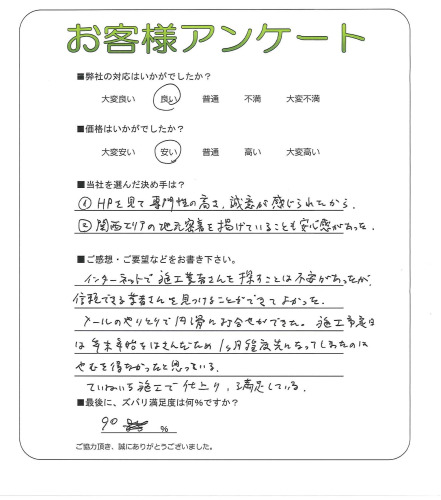 お客様アンケート
■弊社の対応はいかがでしたか？
大変良い 良い 普通 不満 大変不満
■価格はいかがでしたか？
大変安い 安い 普通 高い 大変高い
■当社を選んだ決め手は？
① HPを見て専門性の高さ、誠意が感じられたから。
② 関西エリアの地元密着を掲げていることも安心感があった。
■ご感想・ご要望などをお書き下さい。
インターネットで施工業者さんを探すことは不安があったが、
信頼できる業者さんを見つけることができてよかった。
メールのやりとりで円滑に打合せができた。施工予定日
は年末年始をはさんだため1ヶ月程度先になってしまったのは
やむを得なかったと思っている。
ていねいな施工で仕上り、満足している。
■最後に、ズバリ満足度は何%ですか？
90 %
ご協力頂き、誠にありがとうございました。